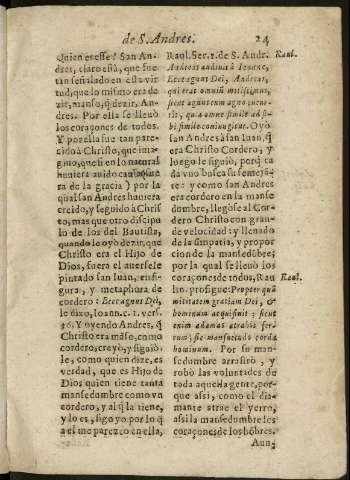 de S. Andres.
24
Quien es esse? San An-
dres, claro está, que fue
tan señalado en esta vir
tud, que lo mismo era de
zir, manso, q̃ dezir, An-
dres. Por ella se lleuò
los coraçones de todos.
Y por ella fue tan pare-
cido à Christo, que ima-
gino, que si en lo natural
huuiera auido
ra de la gracia) por la
qual san Andres huuiera
creido, y seguido à Chris
to, mas que otro discipu
lo de los del Bautista,
quando le oyò dezir, que
Christo era el Hijo de
Dios, fuera el auersele
pintado san Iuan, en fi-
gura, y metaphora de
cordero: Ecce agnus Dei,
le dixo, Ioann. c. 1. vers.
36. Y oyendo Andres, q̃
Christo era mãso, como
cordero, creyò, y siguiò
le, como quien dize, es
verdad, que es Hijo de
Dios quien tiene tanta
mansedumbre como vn
cordero, y al q̃ la tiene,
y lo es, sigo yo por lo q̃
a el me parezco en ella,
Raul. Ser. 2. de S. Andr.
Raul.
Andreas audiuit à Ioanne,
Ecce agnus Dei, Andreas,
qui erat omniũ mitissimus,
sicut agnus cum agno cucur-
rit, qua omne simile ad si-
bi simile coniungitur. Oyò
san Andres à san Iuan, q̃
era Christo Cordero, y
luego le siguiò, porq̃ ca
da vno busca su semejã-
te: y como san Andres
era cordero en la manse
dumbre, llegòse al Cor-
dero Christo con gran-
de velocidad: y lleuado
de la simpatia, y propor
cion de la mansedũbre;
por la qual se lleuò los
coraçones de todos, Rau
Raul.
lin. prosigue: Propter quã
mititatem gratiam Dei, &
hominum acquisiuit; sicut
enim adamas atrahit fer-
rum; sic mansuetudo corda
hominum. Por su man-
sedumbre arrastrò, y
robò las voluntades de
toda aquella gente, por-
que assi, como el dia-
mante atrae el yerro,
assi la mansedumbre los
coraçones de los hõbres.
Aun